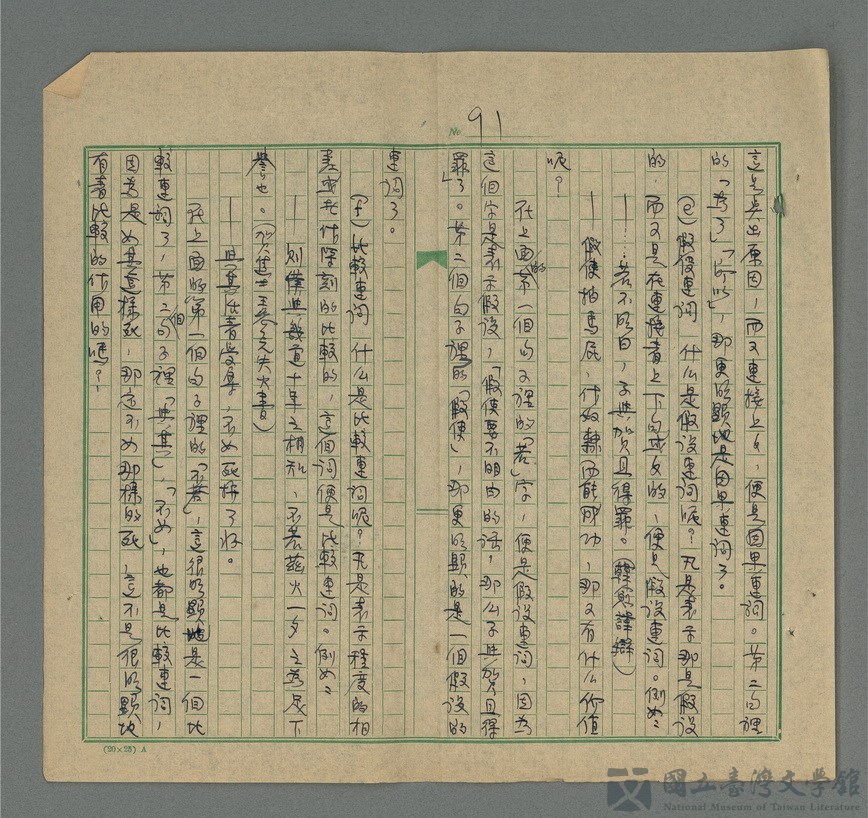 No. 91
這是吳出原因,而又連接上句,便是因果連詞。第二句裡
的「為了」「所以」,那更明顯地是因果連詞了。
(e)假設連詞 什么是假設連詞呢?凡是表示那是假設
的,而又是在連接着上下句或文的,便是假設連詞。例如:
—…若不明白,子與賀且得罪。(韓愈諱辯)
—假使拍馬屁,什奴隸而能成功,那又有什么价值
呢?
在上面的第一個句子裡的「若」字,便是假設連詞,因為
這個字是表示假設,「假使要不明白的話,那么子與賀且得
罪」了。第二個句子裡的「假使」,那更明顯的是一個假設的
連詞了。
(f)比較連詞 什么是比較連詞呢?凡是表示程度的相
差密老什深刻的比較的,這個詞便是比較連詞。例如:
—則僕與幾道十年之相知,不若茲火一夕之為足下
譽也。(賀進士王參元失火書)
—與其活着受辱,不如死掉了好。
在上面的第一個句子裡的「不若」,這很明顯地是一個比
較連詞了,第二個句子裡「與其」,「不如」,也都是比較連詞,
因為是如其這樣死,那還不如那樣的死,這不是很明顯地
有着比較的作用的嗎?
(20×25) A
國立臺灣文學館
National Museum of Taiwan Literature